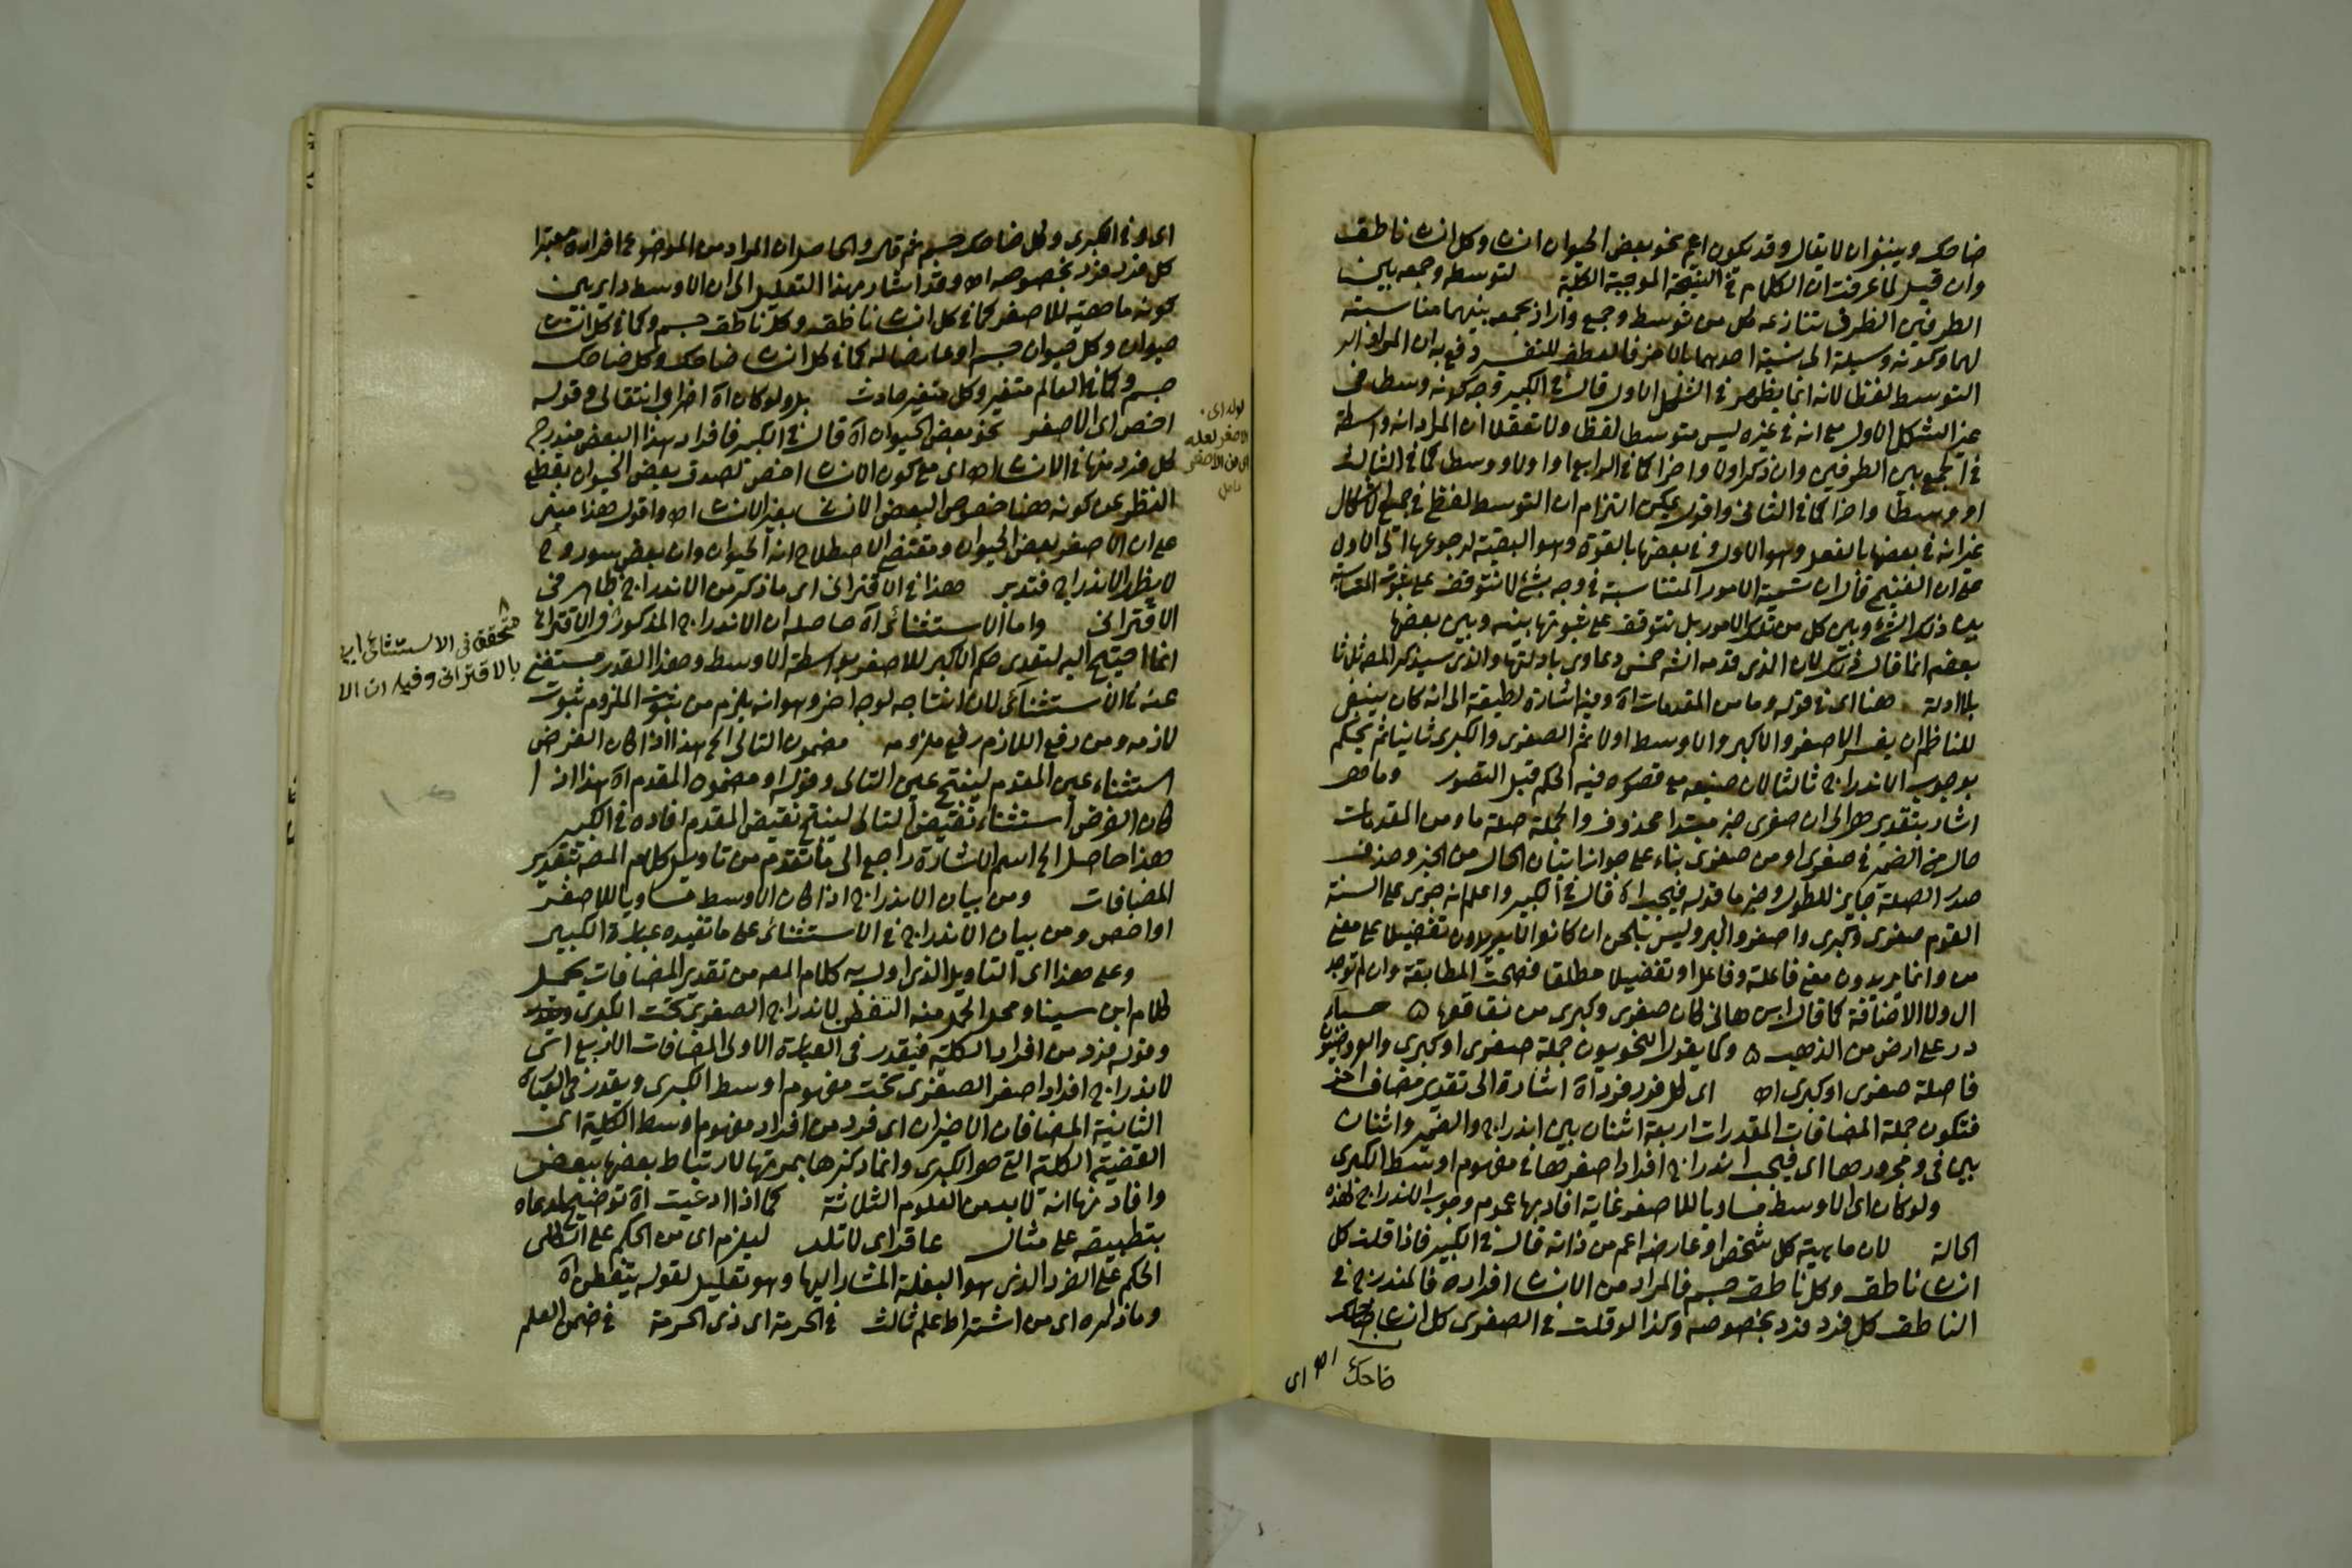 ضاحك وينبغى ان لا يقال وقد يكون اعم نحو بعض الحيوان انسان وكل انسان ناطق
وان قيل لما عرفت ان الكلام فى النتيجة الموجبة الكلية لتوسطه وجمعه بين
الطرفين الظرف تنازعه كل من توسط وجمع واراد بجمعه بينهما مناسبته
لهما وكونه وسيلة الى نسبة احدهما بالاخر فالعطف للتفسير دفع به ان المراد
التوسط لفظا لانه انما يظهر فى الشكل الاول قال فى الكبير وجه كونه وسطا فى
غير الشكل الاول مع انه فى غيره ليس متوسطا لفظا ولا تعقلا ان المراد انه واسطة
فى الجمع بين الطرفين وان ذكر اولا واخرا كما فى الرابع او اولا ووسطا كما فى الثالث
او وسطا واخرا كما فى الثانى واقول يمكن التزام ان التوسط لفظا فى جميع الاشكال
غير انه فى بعضها بالفعل وهو الاول وفى بعضها بالقوة وهو البقية لرجوعها الى الاول
على ان الفنتجى قال ان تسمية الامور المتناسبة فى وجه بشئ لا تتوقف على ثبوت المناسبة
بين ذلك الشئ وبين كل من تلك الامور بل تتوقف على ثبوتها بينه وبين بعضها
بعضهم انما قال ذلك لان الذى قدمه الشه خمس دعاوى بادلتها والذى سيذكره المص ثلثا
بلا ادلة هنا اى فى قوله وما من المقدمات اه وفيه اشارة لطيفة الى انه كان ينبغى
للناظم ان يفسر الاصغر والاكبر والاوسط اولا ثم الصغرى والكبرى ثانيا ثم يحكم
بوجوب الاندراج ثالثا لان صنيعه مع قصوره فيه الحكم قبل التصور وما هو
اشار بتقدير هو الى ان صغرى خبر مبتدا محذوف والجملة صلة ما ومن المقدمات
حال من الضمير فى صغرى او من صغرى بناء على جواز اتيان الحال من الخبر وحذف
صدر الصلة جايز للطول وخبر ما قوله فيجب اه قال فى الكبير واعلم انه جرى على السنة
القوم صغرى وكبرى واصغر واكبر وليس بلحن ان كانوا لا يريدون تفضيلا على معنى
من وانما يريدون معنى فاعلة وفاعل او تفضيلا مطلقا فصحت المطابقة وان لم توجد
ال ولا الاضافة كما قال ابن هانى كان صغرى وكبرى من فقاقعها ه حصباء
در على ارض من الذهب ه وكما يقول النحويون جملة صغرى او كبرى والعروضيون
فاصلة صغرى او كبرى اه اى لكل فرد فرد اه اشارة الى تقدير مضاف اخر
فتكون جملة المضافات المقدرات اربعة اثنان بين اندراج والضمير واثنان
بين فى ومجرورها اى فيجب اندراج افراد اصغرها فى مفهوم اوسط الكبرى
ولو كان اى الاوسط مساويا للاصغر غاية افاد بها عموم وجوب الاندراج لهذه
الحالة لان ماهية كل شخص او عارضه اعم من ذاته قال فى الكبير فاذا قلت كل
انسان ناطق وكل ناطق جسم فالمراد من الانسان افراده فالمندرج فى
الناطق كل فرد فرد بخصوصه وكذا لو قلت فى الصغرى كل انسان ضاحك
ضاحك اه اى
اى او فى الكبرى وكل ضاحك جسم ثم قال والحاصل ان المراد من الموضوع افراده معتبرا
كل فرد فرد بخصوصه اه وقد اشار بهذا التعليل الى ان الاوسط داير بين
كونه ماهية للاصغر كما فى كل انسان ناطق وكل ناطق جسم وكما فى كل انسان
حيوان وكل حيوان جسم او عارضا له كما فى كل انسان ضاحك وكل ضاحك
جسم وكما فى العالم متغير وكل متغير حادث بل ولو كان اه اضراب انتقالى وقوله
اخص اى الاصغر نحو بعض الحيوان اه قال فى الكبير فافراد هذا البعض مندرج
كل فرد منها فى الانسان اه اى مع كون الانسان اخص لصدق بعض الحيوان بقطع
النظر عن كونه هنا خصوص البعض الانسان بغير الانسان اه واقول هذا مبنى
على ان الاصغر بعض الحيوان ومقتضى الاصطلاح انه الحيوان وان بعض سور وح
لا يظهر الاندراج فتدبر هذا فى الاقترانى اى ما ذكر من الاندراج ظاهر فى
الاقترانى واما الاستثنائى اه حاصله ان الاندراج المذكور فى الاقترانى
انما احتيج اليه لتعدى حكم الاكبر للاصغر بواسطة الاوسط وهذا القدر مستغنى
عنه فى الاستثنائى لان انتاجه لوجه اخر وهو انه يلزم من ثبوت الملزوم ثبوت
لازمه ومن رفع اللازم رفع ملزومه مضمون التالى الخ هذا اذا كان الغرض
استثناء عين المقدم لينتج عين التالى وقوله او مضمون المقدم اه هذا اذا
كان الغرض استثناء نقيض التالى لينتج نقيض المقدم افاده فى الكبير
هذا حاصل الخ اسم الاشارة راجع الى ما تقدم من تاويل كلام المص بتقدير
المضافات ومن بيان الاندراج اذا كان الاوسط مساويا للاصغر
او اخص ومن بيان الاندراج فى الاستثنائى على ما تفيده عبارة الكبير
وعلى هذا اى التاويل الذى اول به كلام المص من تقدير المضافات يحمل
كلام ابن سينا ومحل الحمل منه التفطن لاندراج الصغرى تحت الكبرى
وقوله فرد من افراد الكلية فيقدر فى العبارة الاولى المضافات الاربع اى
لاندراج افراد اصغر الصغرى تحت مفهوم اوسط الكبرى ويقدر فى العبارة
الثانية المضافان الاخيران اى فرد من افراد مفهوم اوسط الكلية اى
القضية الكلية التى هو الكبرى وانما ذكرها بمرتها لارتباط بعضها ببعض
وافاد نها انه لا بد من العلوم الثلاثة كما اذا ادعيت اه توضيح لمدعاه
بتطبيقه على مثال عاقر اى لا تلد ليلزم اى من الحكم على الكلى
الحكم على الفرد الذى هو البغلة المشار اليها وهو تعليل لقوله يتفطن اه
وما ذكره اى من اشتراط علم ثالث فى الحرمة اى ذى الحرمة فى ضمن العلم
قوله اى
الاصغر لعله
اى من الاصغر
تامل
متحقق فى الاستثنائى
بالاقترانى وفيه ان الا